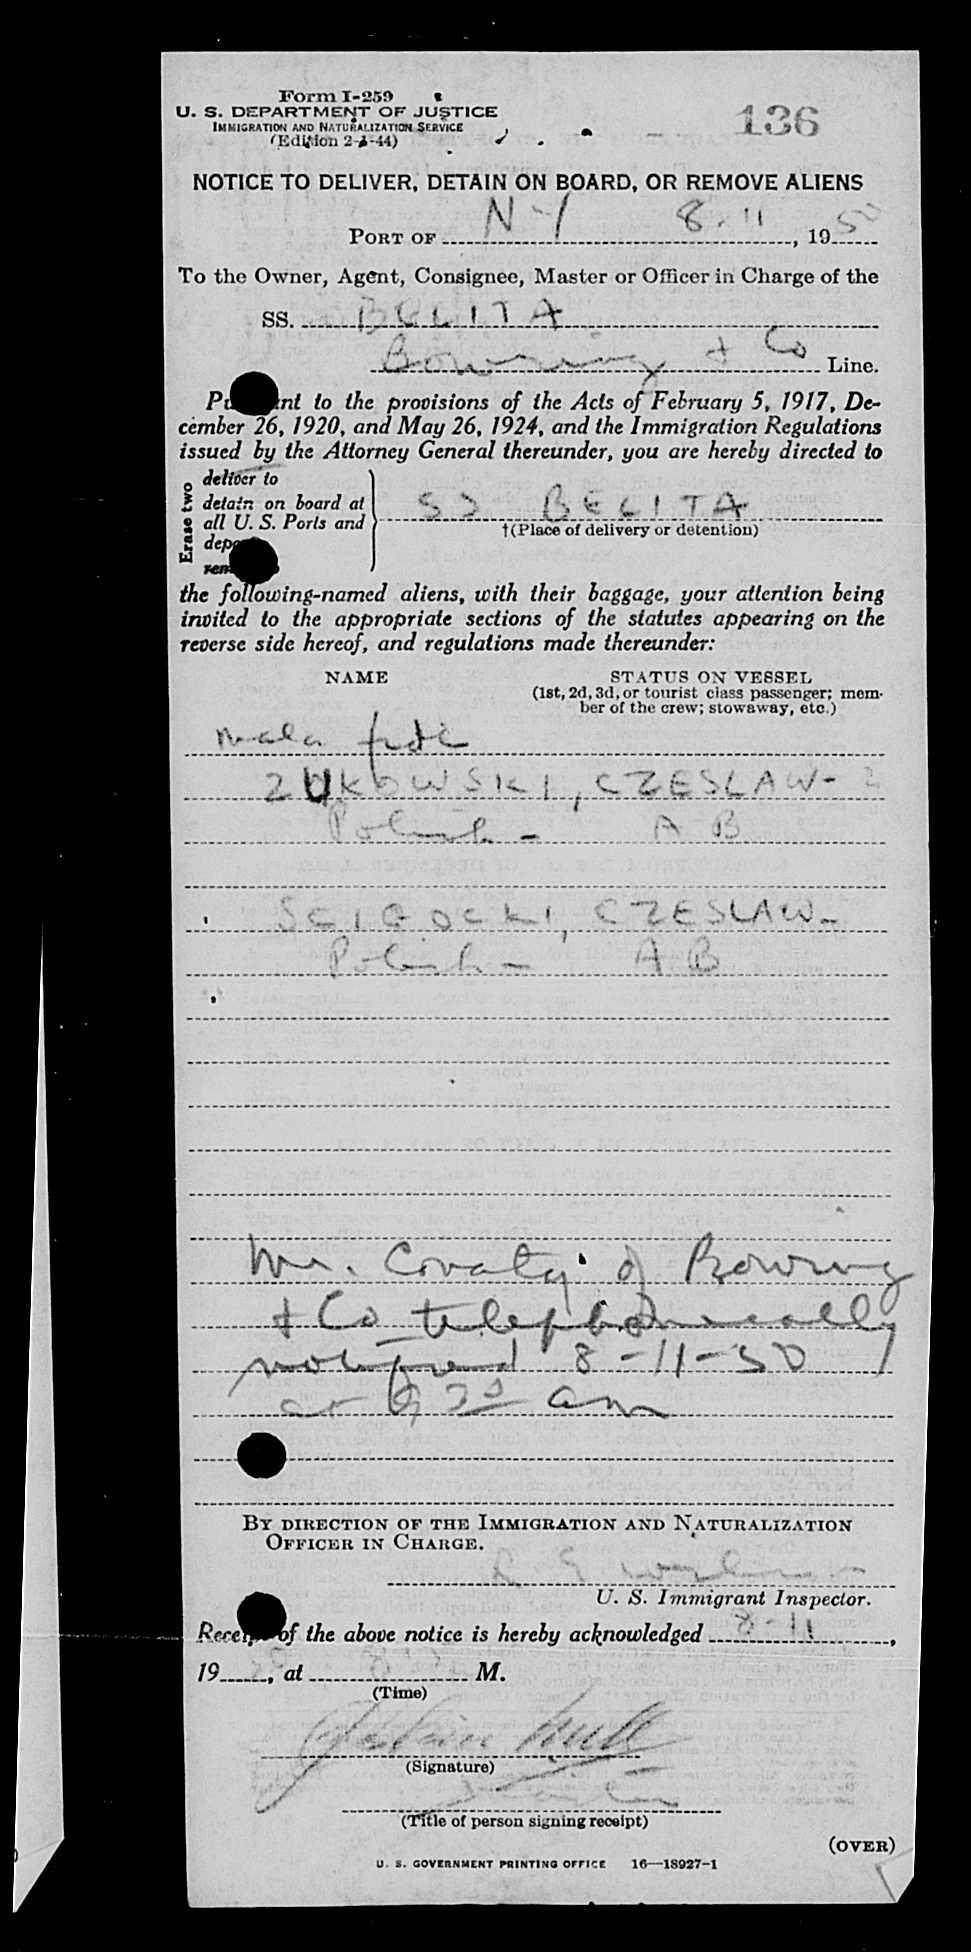 Form I-259
U. S. DEPARTMENT OF JUSTICE
IMMIGRATION AND NATURALIZATION SERVICE
(Edition 2-1-44)
136
NOTICE TO DELIVER, DETAIN ON BOARD, OR REMOVE ALIENS
PORT OF N Y 8-11, 1950
To the Owner, Agent, Consignee, Master or Officer in Charge of the
SS. BELITA
Bowring & Co Line.
nt to the provisions of the Acts of February 5, 1917, De-
cember 26, 1920, and May 26, 1924, and the Immigration Regulations
issued by the Attorney General thereunder, you are hereby directed to
Erase two
deliver to
detain on board at
all U. S. Ports and
SS BELITA
†(Place of delivery or detention)
the following-named aliens, with their baggage, your attention being
invited to the appropriate sections of the statutes appearing on the
reverse side hereof, and regulations made thereunder:
NAME STATUS ON VESSEL
(1st, 2d, 3d, or tourist class passenger; mem-
ber of the crew; stowaway, etc.)
mala fide
ZUKOWSKI, CZESLAW-
Polish - A B
SCIGOCKI, CZESLAW-
Polish - A B
Mr. of Bowring
& Co telephonically
notified 8-11-50
at am
BY DIRECTION OF THE IMMIGRATION AND NATURALIZATION
OFFICER IN CHARGE.
U. S. Immigrant Inspector.
Receipt of the above notice is hereby acknowledged 8-11,
19 , at M.
(Time)
(Signature)
(Title of person signing receipt)
(OVER)
U. S. GOVERNMENT PRINTING OFFICE 16—18927-1